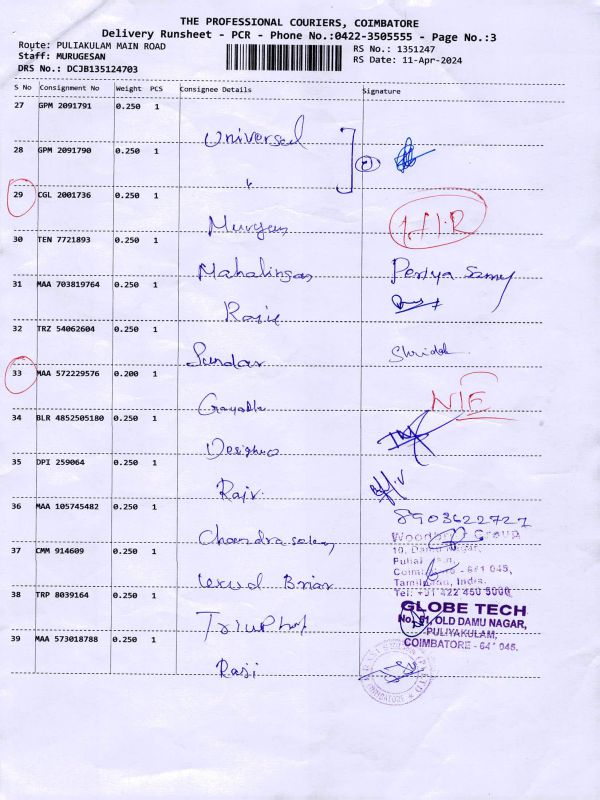 THE PROFESSIONAL COURIERS, COIMBATORE
Delivery Runsheet - PCR - Phone No.:0422-3505555 - Page No.:3
Route: PULIAKULAM MAIN ROAD
RS No.: 1351247
Staff: MURUGESAN
RS Date: 11-Apr-2024
DRS No.: DCJB135124703
S No Consignment No Weight PCS Consignee Details Signature
27 GPM 2091791 0.250 1
Universal
28 GPM 2091790 0.250 1
29 CGL 2001736 0.250 1
Murugan
30 TEN 7721893 0.250 1
Mahalingam Periya Samy
31 MAA 703819764 0.250 1
Rajie
32 TRZ 54062604 0.250 1
Sundar Shridar
33 MAA 572229576 0.200 1
Gayathri N/E
34 BLR 4852505180 0.250 1
Designs
35 DPI 259064 0.250 1
Rajv.
36 MAA 105745482 0.250 1
8903622727
Chandrasekar
Group
10, Damu Nagar,
37 CMM 914609 0.250 1
Coimbatore - 641 045,
Wood Briar
Tamilnadu, India.
Tel: +91 422 450 5000
38 TRP 8039164 0.250 1
GLOBE TECH
No. 51, OLD DAMU NAGAR,
Triumph
PULIYAKULAM,
39 MAA 573018788 0.250 1
COIMBATORE - 641 045.
Raji